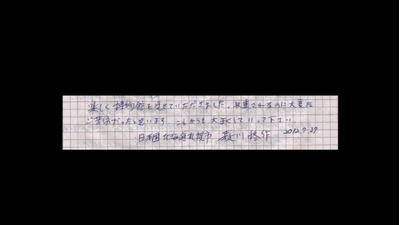 楽しく博物館を見せていただきました。収集されるのに大変な
ご苦労だったと思います これからも大事にしていって下さい
日本国北海道札幌市 2012.9.29